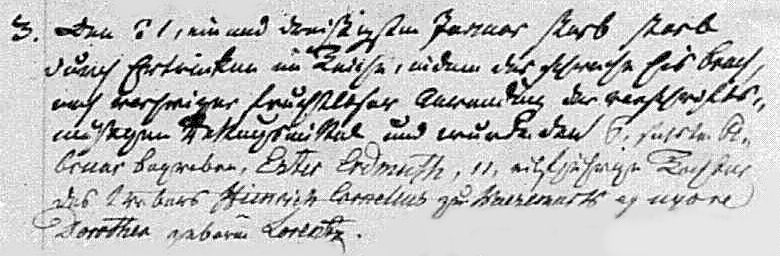 3. Den 31, ein und dreißigsten Januar starb starb
durch Ertrinken im Teiche, indem das schwache Eis brach,
nach vorheriger fruchtloser Anwendung der vorschrifts-
mäßigen Rettungsmittel und wurde den 6. sechsten Fe-
bruar begraben, Ester Erdmuth, 11, eilfjährige Tochter
des Webers Heinrich Cornelius zu ex uxore
Dorothea geborne Lorentz.